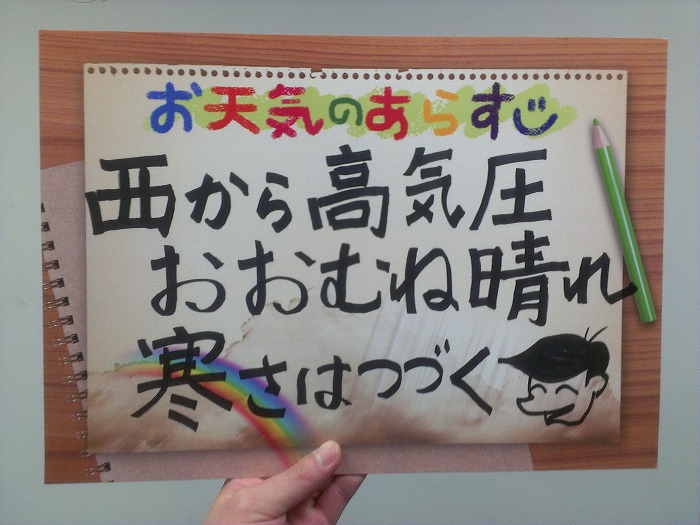 お天気のあらすじ
西から高気圧
おおむね晴れ
寒さはつづく